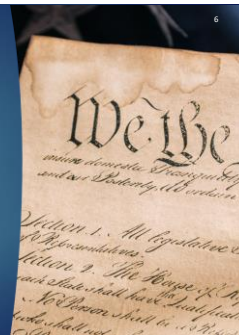 6
We the
insure domestic Tranquility
and our Posterity, do ordain
Section. 1. All legislative
of Representatives.
Section. 2. The House of
each State shall have Qualificat
No Person shall be a
shall not